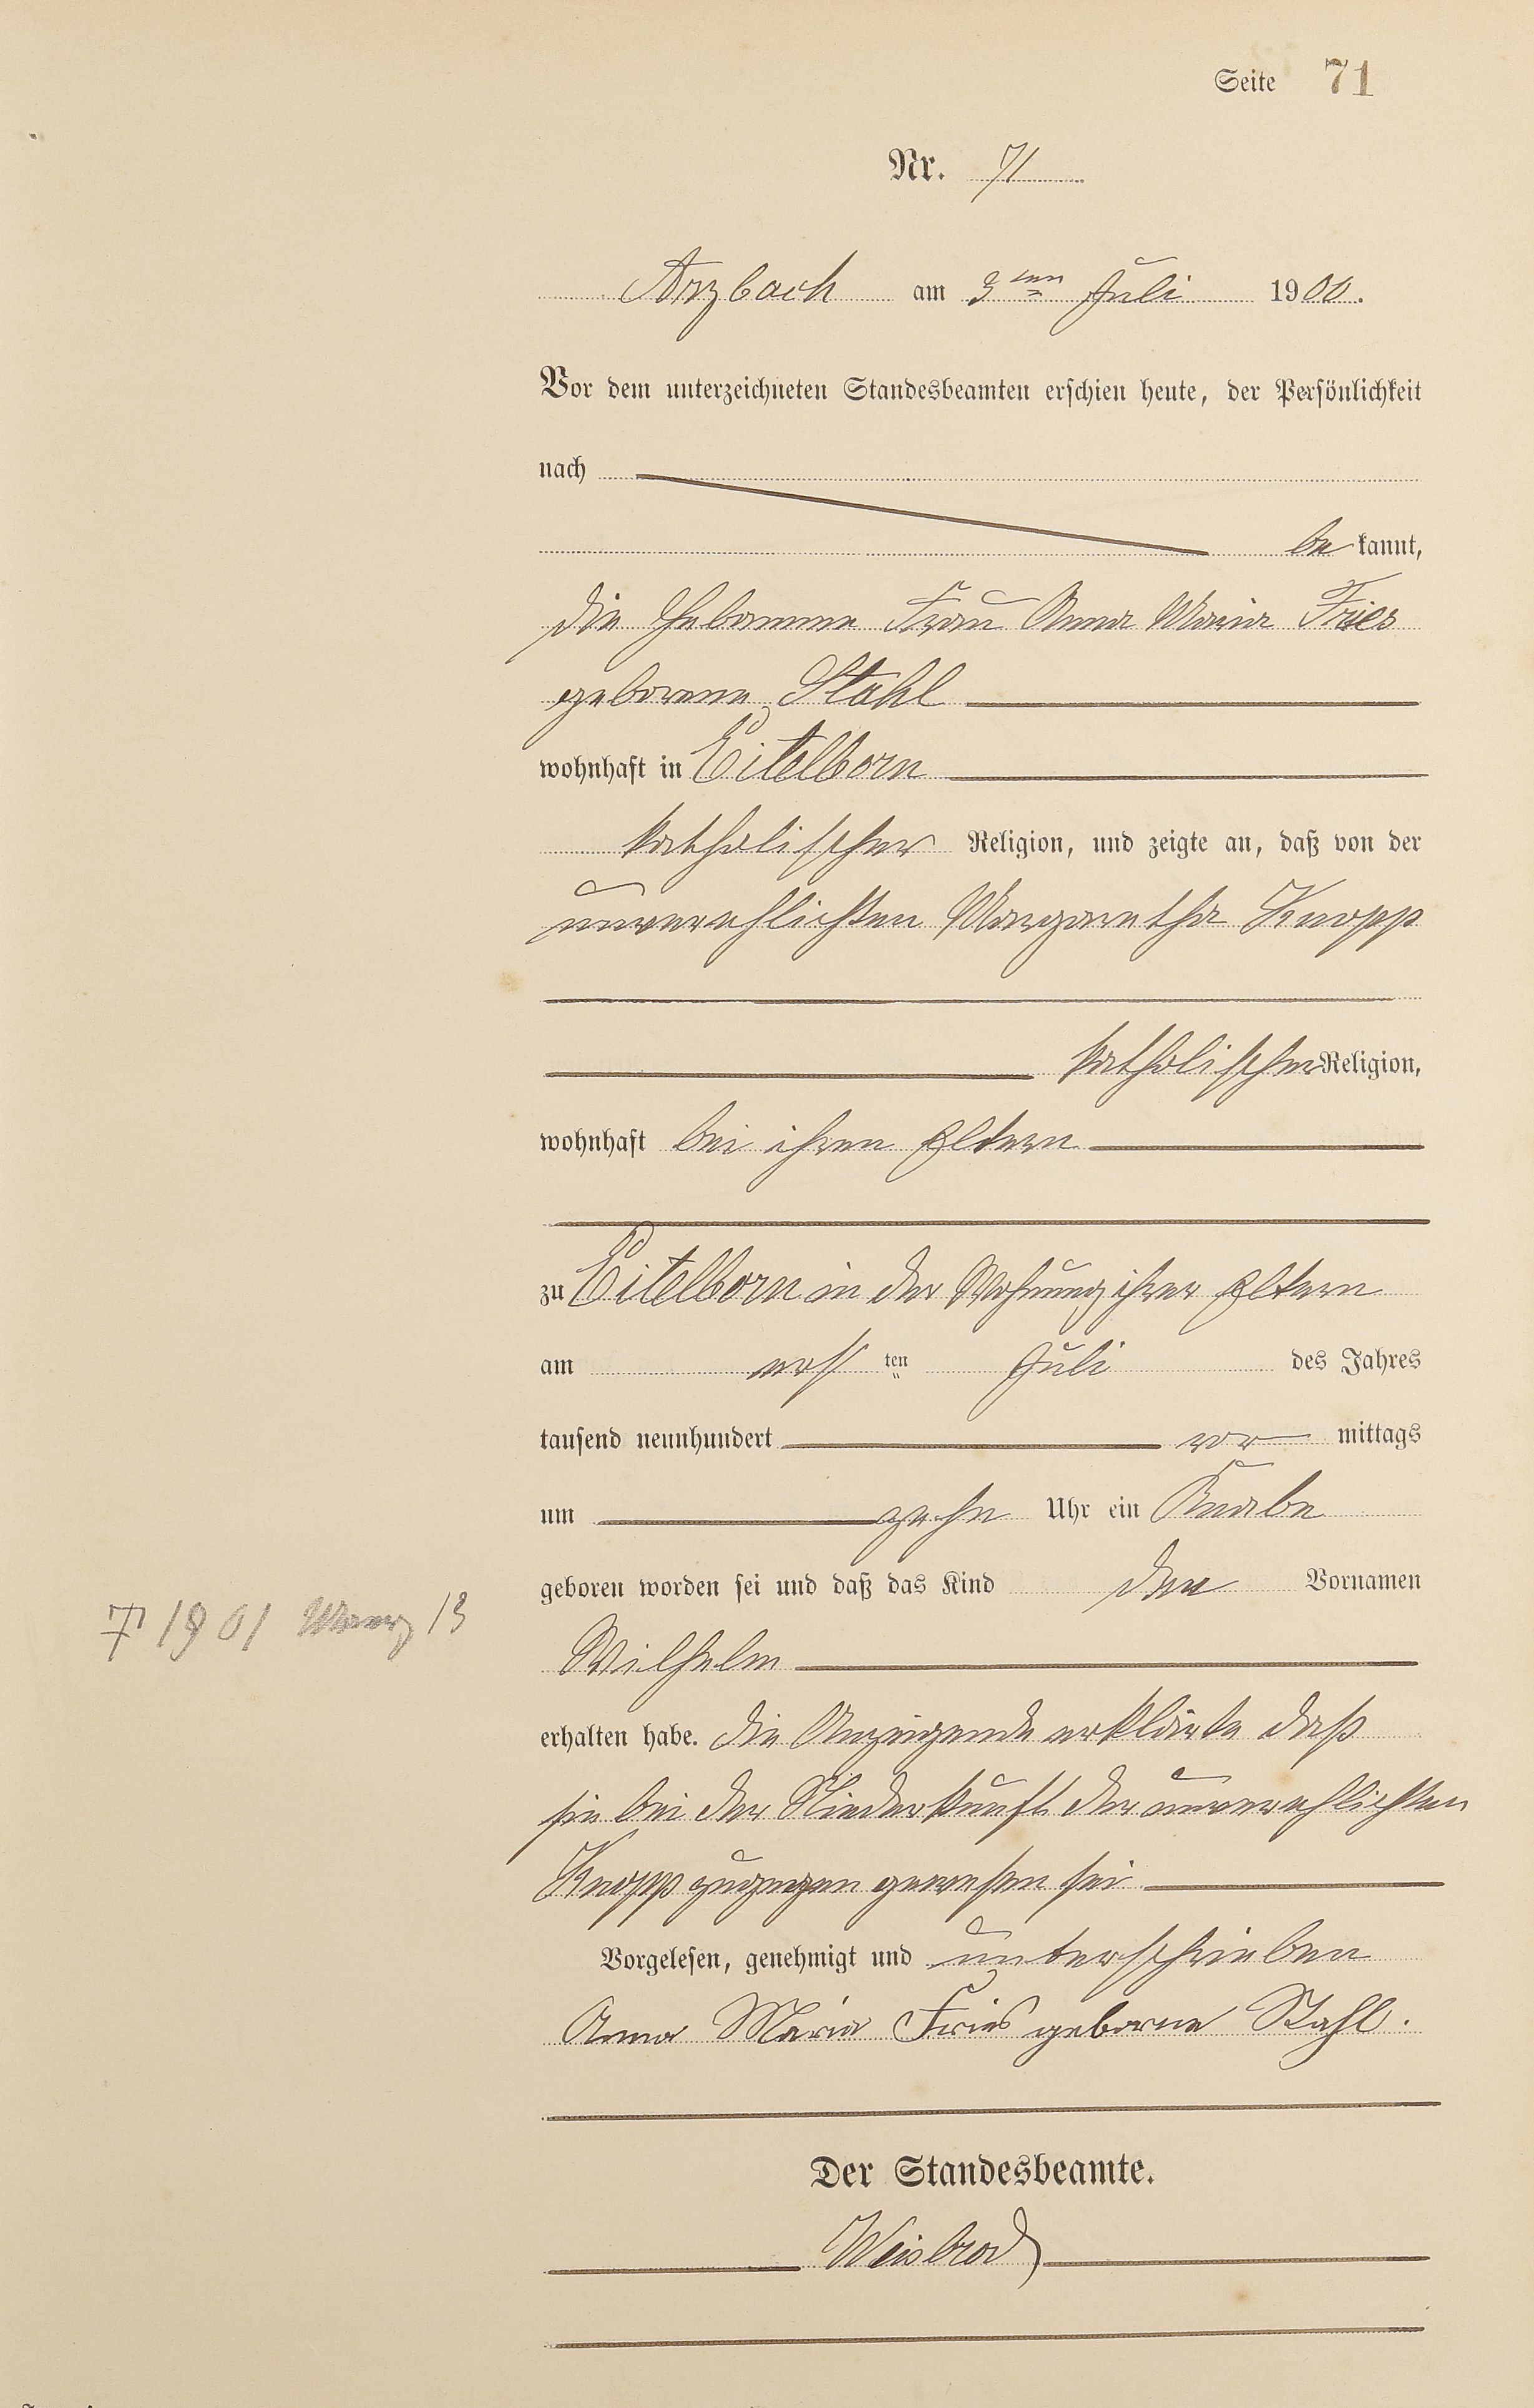 Seite 71
Nr. 71
Arzbach am 3ten Juli 1900.
Vor dem unterzeichneten Standesbeamten erschien heute, der Persönlichkeit
nach
be kannt,
die Hebamme Frau Anna Maria Fries
geborene Stahl
wohnhaft in Eitelborn
katholischer Religion, und zeigte an, daß von der
unverehlichten Margaretha Knopp
katholischer Religion,
wohnhaft bei ihren Eltern
zu Eitelborn in der Wohnung ihrer Eltern
am erst ten Juli des Jahres
tausend neunhundert vor mittags
um zehn Uhr ein Knabe
geboren worden sei und daß das Kind den Vornamen
† 1901 Maerz 13
Wilhelm
erhalten habe. Die Anzeigende erklärte daß
sie bei der Niederkunft der unverehlichten
Knopp zugegen gewesen sei
Vorgelesen, genehmigt und unterschrieben
Anna Maria Fries geborne Stahl.
Der Standesbeamte.
Weisbrod